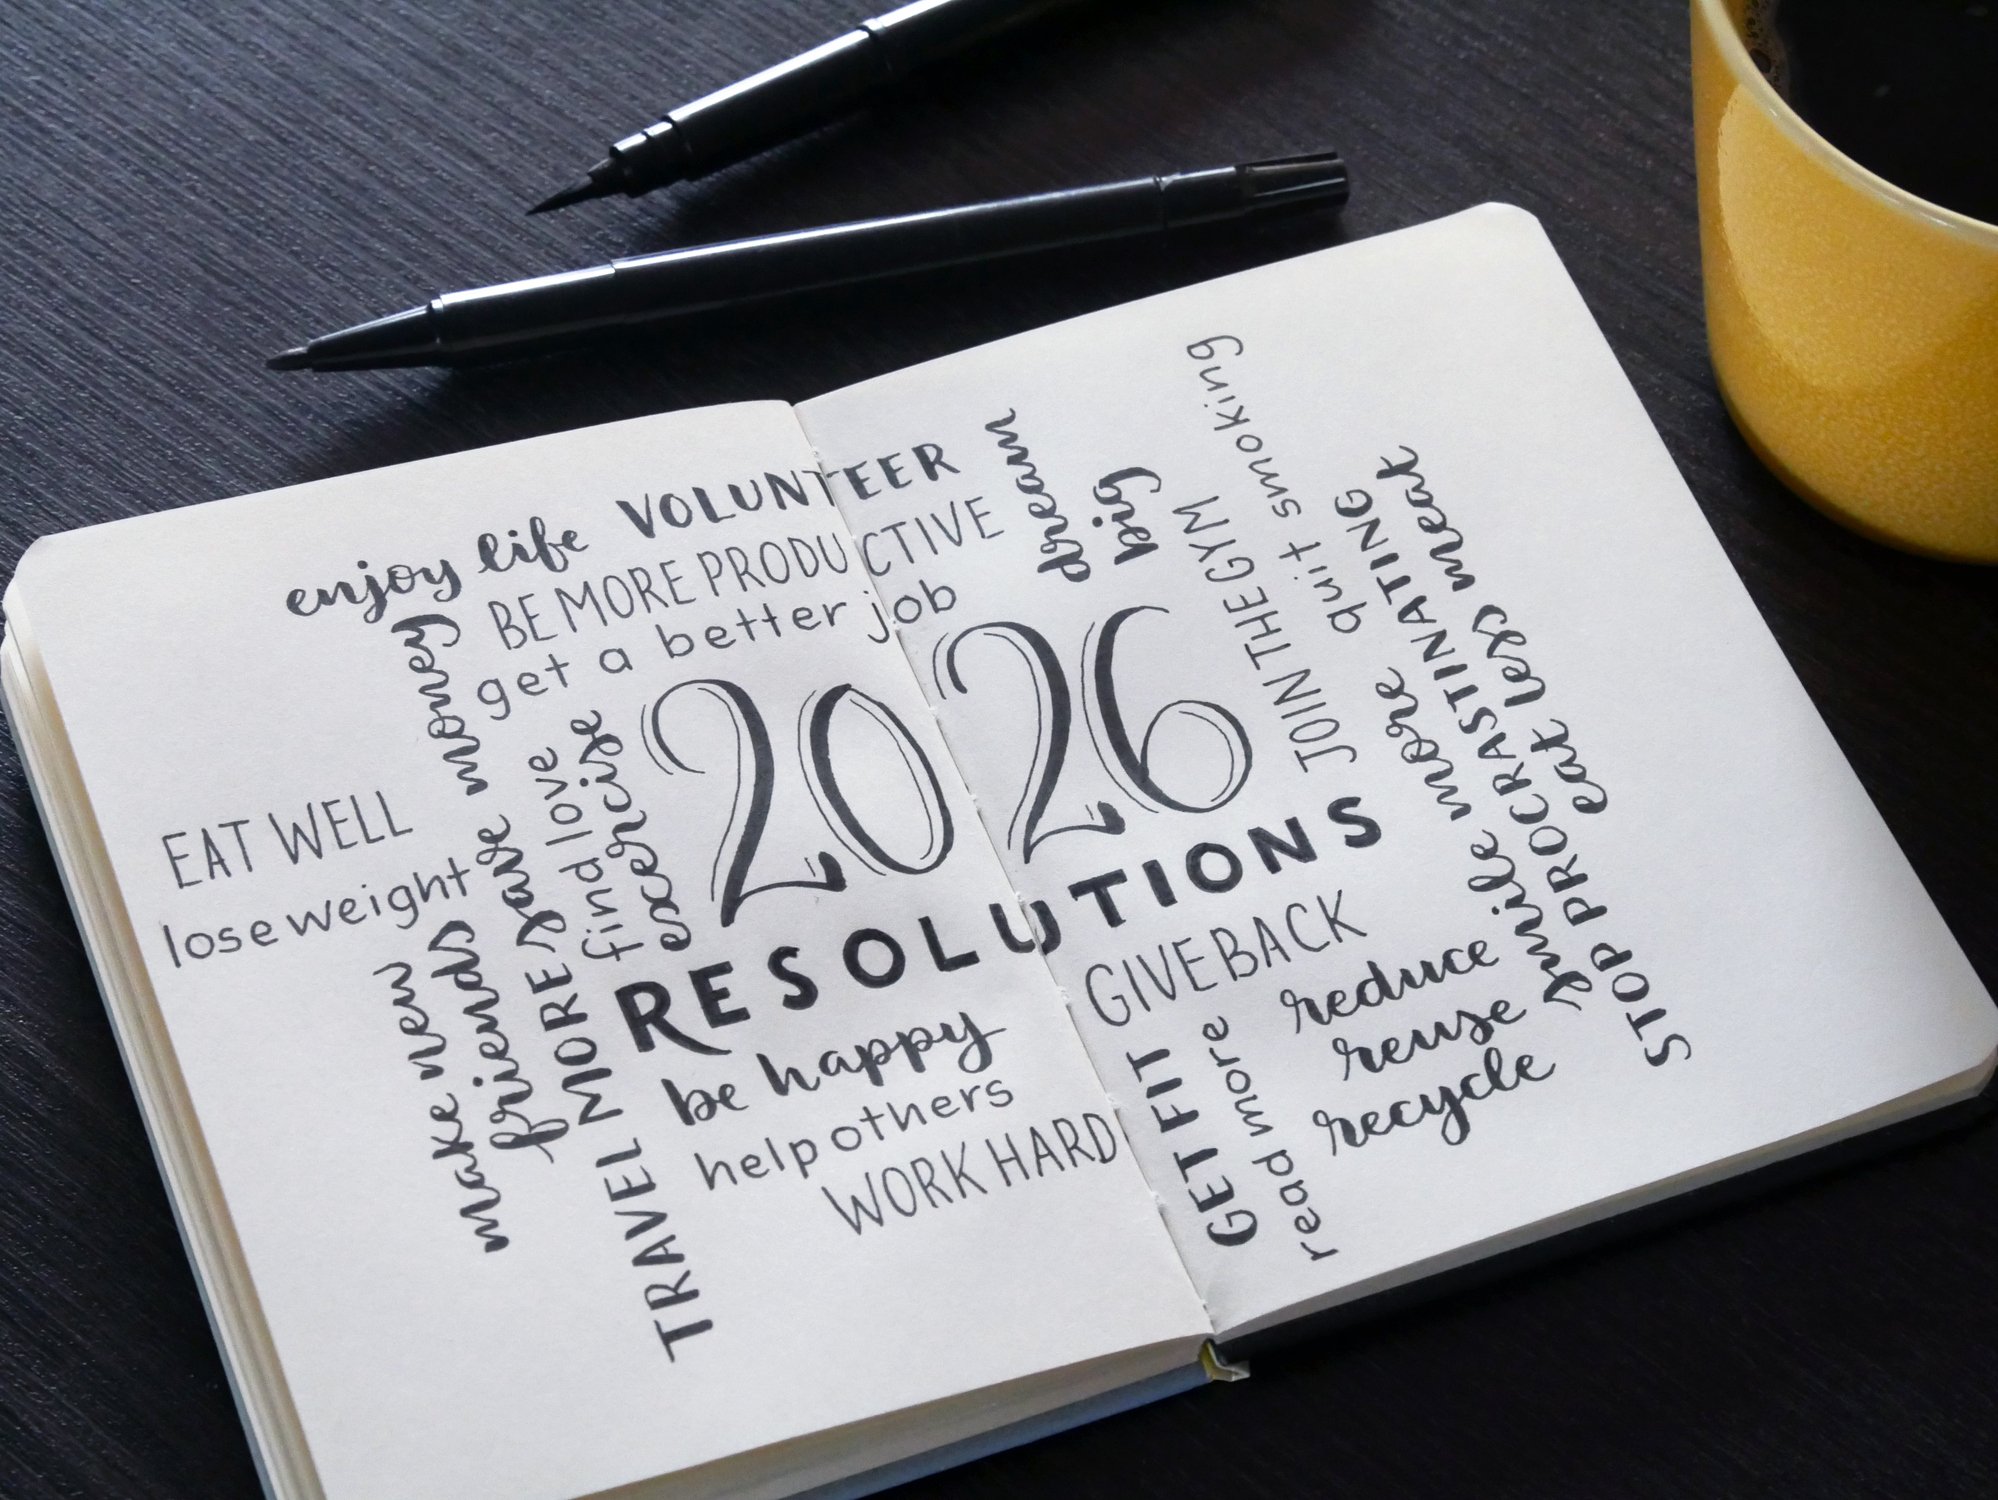 enjoy life
VOLUNTEER
BE MORE PRODUCTIVE
get a better job
dream
big
JOIN THE GYM
quit smoking
save money
find love
excercise
2026
RESOLUTIONS
EAT WELL
lose weight
make new
friends
TRAVEL MORE
be happy
help others
WORK HARD
GIVE BACK
GET FIT
read more
reduce
reuse
recycle
smile more
STOP PROCRASTINATING
eat less meat